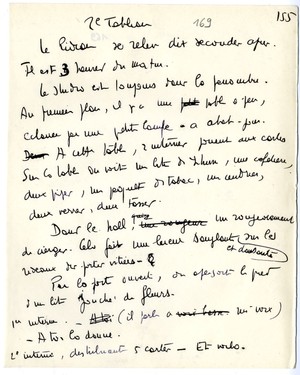 2e Tableau 169 155
Le Rideau se relève dix secondes après.
Il est 3 heures du matin.
Le studio est toujours dans la pénombre.
Au premier plan, il y a une table à jeu,
éclairée par une petite lampe à abat-jour.
A cette table, 2 internes jouent aux cartes
Sur la table on voit un litre de rhum, une cafetière,
deux pipes, un paquet de tabac, un cendrier,
deux verres, deux tasses.
Dans le hall, un rougeoiement
de cierges. Cela fait une lueur sanglante sur les
et dansante
rideaux des portes vitrées.
Par la porte ouverte, on aperçoit le pied
d'un lit jonché de fleurs.
1er interne. - (il parle à mi-voix)
- A toi la donne.
2e interne, distribuant 5 cartes - Et voilà.